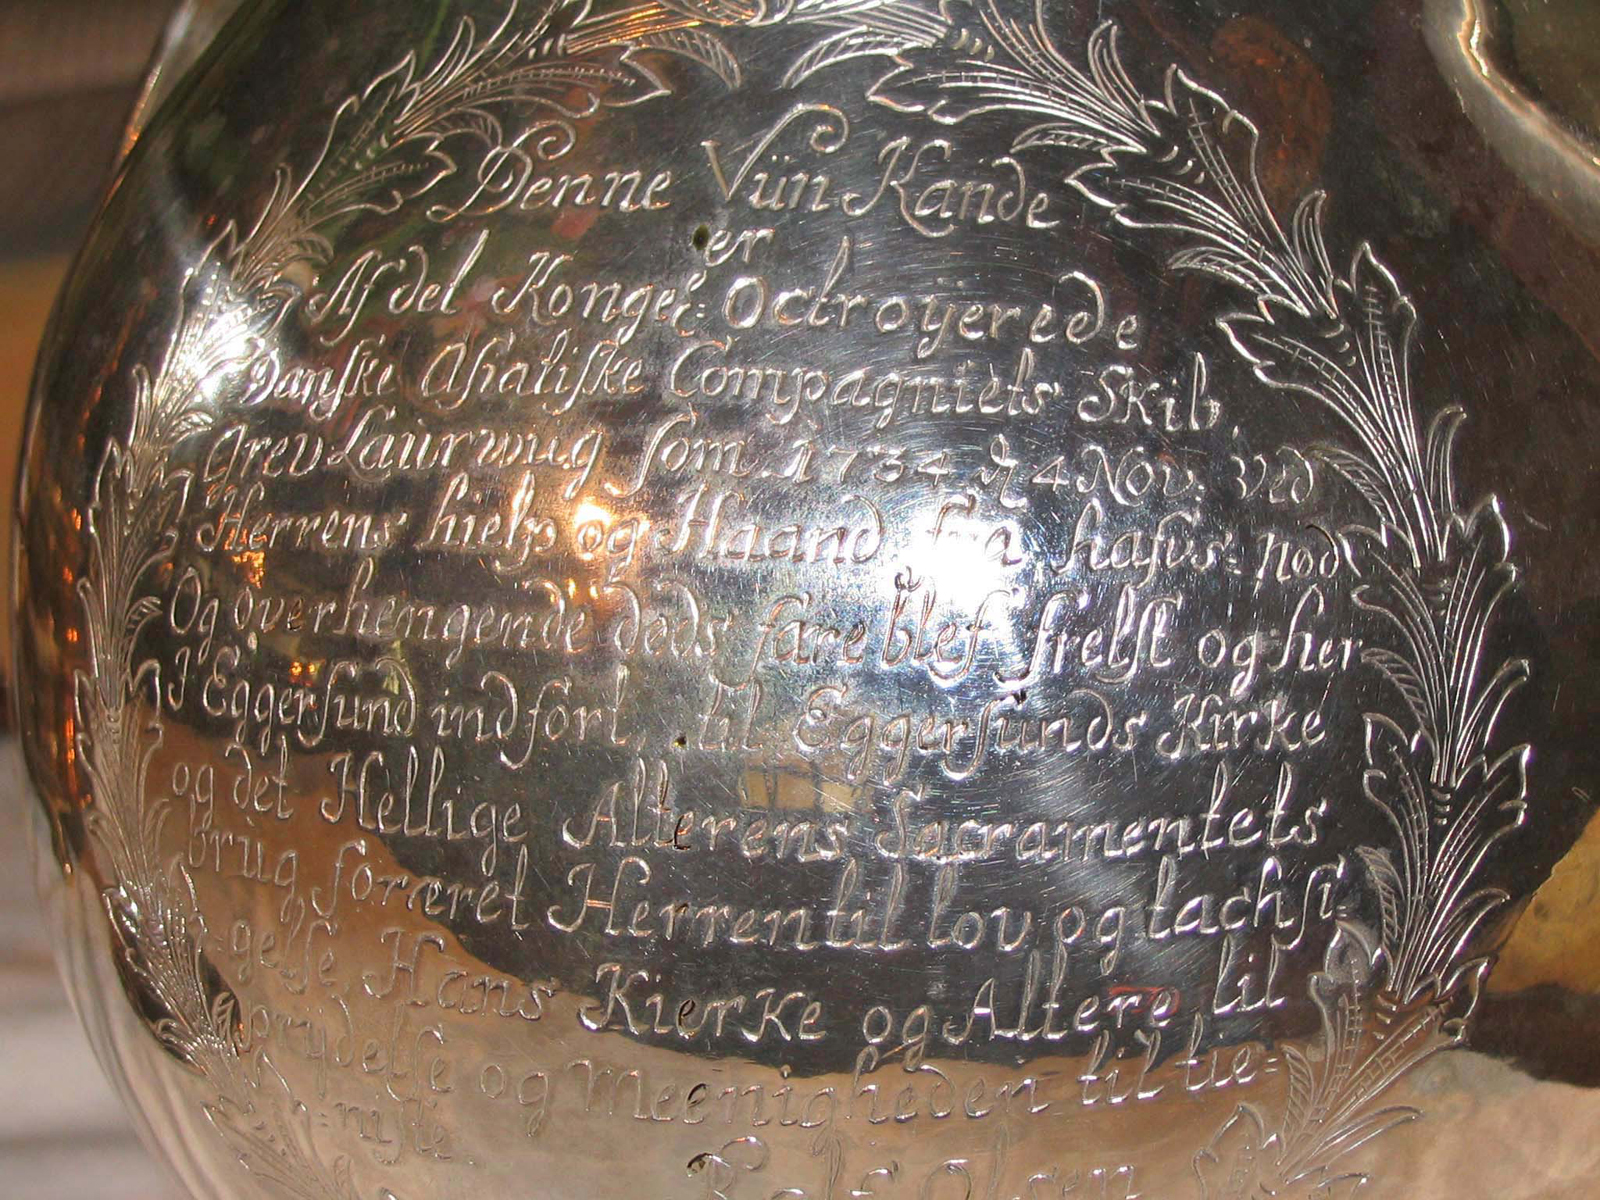 Denne Vün Kande
er
Af det Kongel: Octroÿerede
Danske Asiatiske Compagniets Skib,
Grev Laürwüg som 1734 d 4 Nov: ved
Herrens hielp og Haand fra hafvs-nød
Og overhengende døds fare blef frelst og her
I Eggersünd indført, til Eggersünds Kirke
og det Hellige Alterens Sacramentets
brüg foræret Herren til lov og tachsi-
-gelse, Hans Kierke og Altere til
prÿdelse og Meenigheden til tie-
-niste
Rolf Olsen